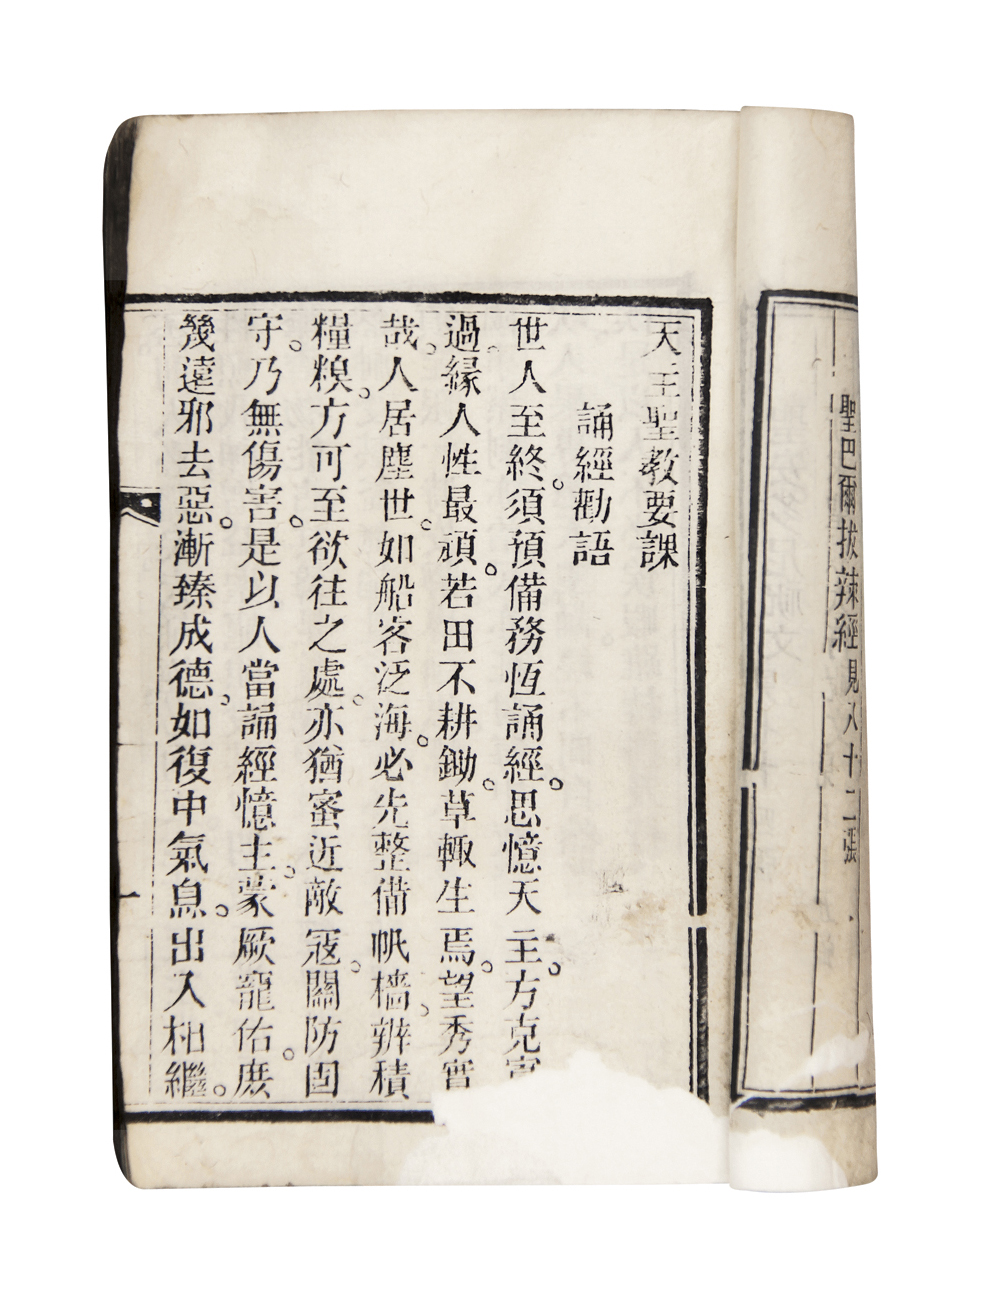 聖巴爾拔辣經見八十二張
天主聖教要課
誦經勸語
世人至終。須預備務恆誦經。思憶天主。方克寡
過。緣人性最頑。若田不耕鋤。草輙生焉。望秀實
哉。人居塵世。如船客泛海。必先整備帆檣。辦積
糧糗。方可至欲往之處。亦猶蜜近敵寇。關防固
守。乃無傷害。是以人當誦經憶主。蒙厥寵佑。庶
幾遠邪去惡。漸臻成德。如復中氣息。出入相繼。
一